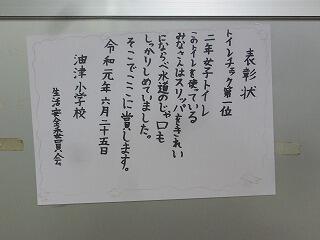 表彰状
トイレチェック第一位
二年女子トイレ
このトイレを使っている
みなさんはスリッパをきれい
にならべ水道のじゃ口も
しっかりしめていました。
そこでここに賞します。
令和元年六月二十五日
油津小学校
生活安全委員会